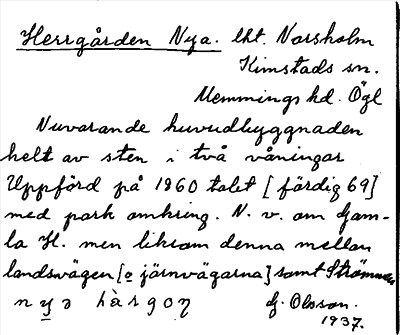 Herrgården Nya. lht. Norsholm
Kimstads sn.
Memmings hd. Ögl
Nuvarande huvudbyggnaden
helt av sten i två våningar
Uppförd på 1960 talet [färdig 69]
med park omkring. N. v. om Gam-
la H. men liksom denna mellan
landsvägen [o järnvägarna] samt Strömmen
G. Olsson.
1937.